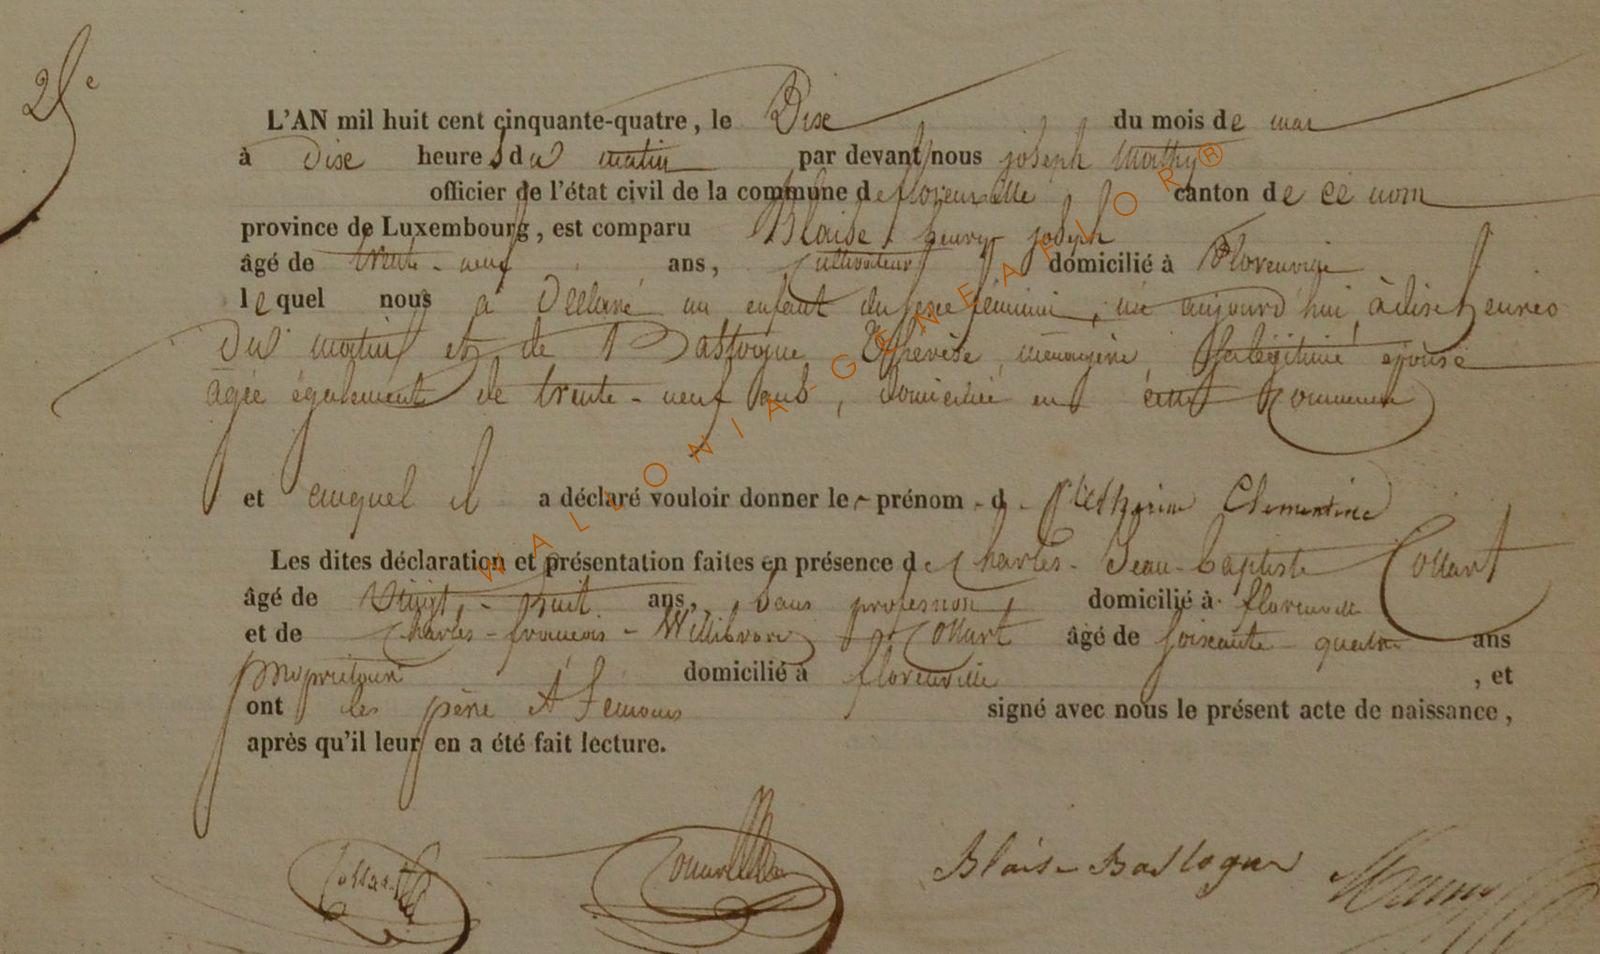 25e
L'AN mil huit cent cinquante-quatre, le Dix du mois de mai
à dix heures du matin par devant nous joseph Mathy
officier de l'état civil de la commune de florenville canton de ce nom
province de Luxembourg, est comparu Blaise, henry joseph
âgé de trente-neuf ans, Cultivateur domicilié à Florenville
lequel nous a Déclaré un enfant du sexe féminin, né aujourd'hui, à dix heures
Du matin et de Bastogne Thérèse, ménagère, Sa légitime épouse
agée également de trente-neuf ans, domiciliée en cette Commune
et auquel il a déclaré vouloir donner le prénom d Catherine Clementine
Les dites déclaration et présentation faites en présence de Charles-Jean-baptiste Collart
âgé de Vingt-huit ans, Sans profession domicilié à florenville
et de Charles-françois-Willibrord Collart âgé de Soixante quatre ans
propriétaire domicilié à florenville, et
ont les père et Temoins signé avec nous le présent acte de naissance,
après qu'il leur en a été fait lecture.
Collart Blaise Bastogne
WALLONIA-GENEAFLOR®